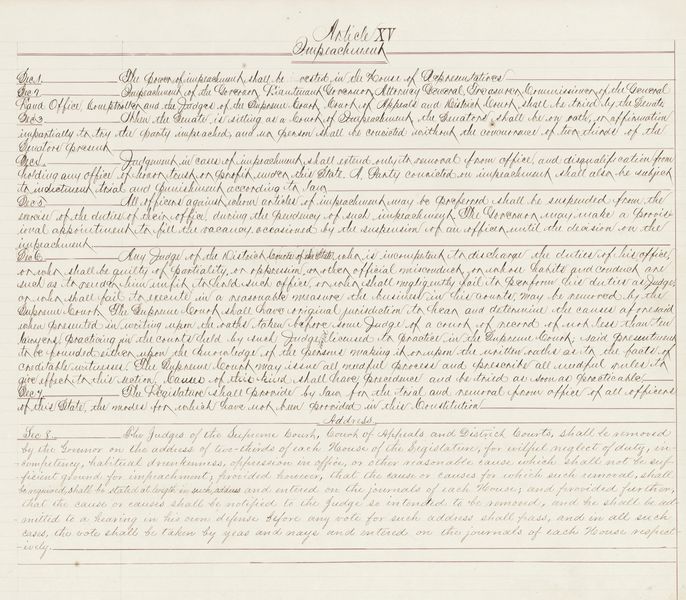 Article XV
Impeachment
Sec 1. The power of impeachment shall be vested in the House of Representatives
Sec 2. Impeachment of the Governor, Lieutenant Governor, Attorney General, Treasurer, Commissioner of the General
Land Office, Comptroller and the Judges of the Supreme Court, Court of Appeals and District Court shall be tried by the Senate
Sec 3. When the Senate is sitting as a Court of Impeachment, the Senators shall be on oath, or affirmation
impartially to try the party impeached, and no person shall be convicted without the concurrence of two thirds of the
Senators present
Sec 4. Judgment in cases of impeachment shall extend only to removal from office, and disqualification from
holding any office of honor, trust or profit under this State. A Party convicted on impeachment shall also be subject
to indictment trial and punishment according to law
Sec 5. All officers against whom articles of impeachment may be preferred shall be suspended from the
exercise of the duties of their office, during the pendency of such impeachment. The Governor may make a provis-
ional appointment to fill the vacancy occasioned by the suspension of an officer until the decision on the
impeachment
Sec 6. Any Judge of the District Courts of the State who is incompetent to discharge the duties of his office,
or who shall be guilty of partiality, or oppression, or other official misconduct, or whose habits and conduct are
such as to render him unfit to hold such office, or who shall negligently fail to perform his duties as Judge;
or who shall fail to execute in a reasonable measure the business in his courts, may be removed by the
Supreme Court. The Supreme Court shall have original jurisdiction to hear and determine the causes aforesaid
when presented in writing upon the oaths taken before some Judge of a court of record of not less than ten
lawyers, practicing in the courts held by such Judge, licensed to practice in the Supreme Court; said presentment
to be founded either upon the knowledge of the persons making it or upon the written oaths as to the facts of
creditable witnesses. The Supreme Court may issue all needful process and prescribe all needful rules to
give effect to this section. Causes of this kind shall have precedence and be tried as soon as practicable.
Sec 7. The Legislature shall provide by law for the trial and removal from office of all officers
of this State, the modes for which have not been provided in this Constitution
Address
Sec 8. The Judges of the Supreme Court, Court of Appeals and District Courts, shall be removed
by the Governor on the address of two-thirds of each House of the Legislature, for wilful neglect of duty, in-
competency, habitual drunkenness, oppression in office, or other reasonable cause which shall not be suf-
ficient ground for impeachment; Provided however, that the cause or causes for which such removal shall
be required, shall be stated at length in such address and entered on the journals of each House; and provided further,
that the cause or causes shall be notified to the Judge so intended to be removed, and he shall be ad-
mitted to a hearing in his own defense before any vote for such address shall pass, and in all such
cases, the vote shall be taken by yeas and nays and entered on the journals of each House respect-
ively.